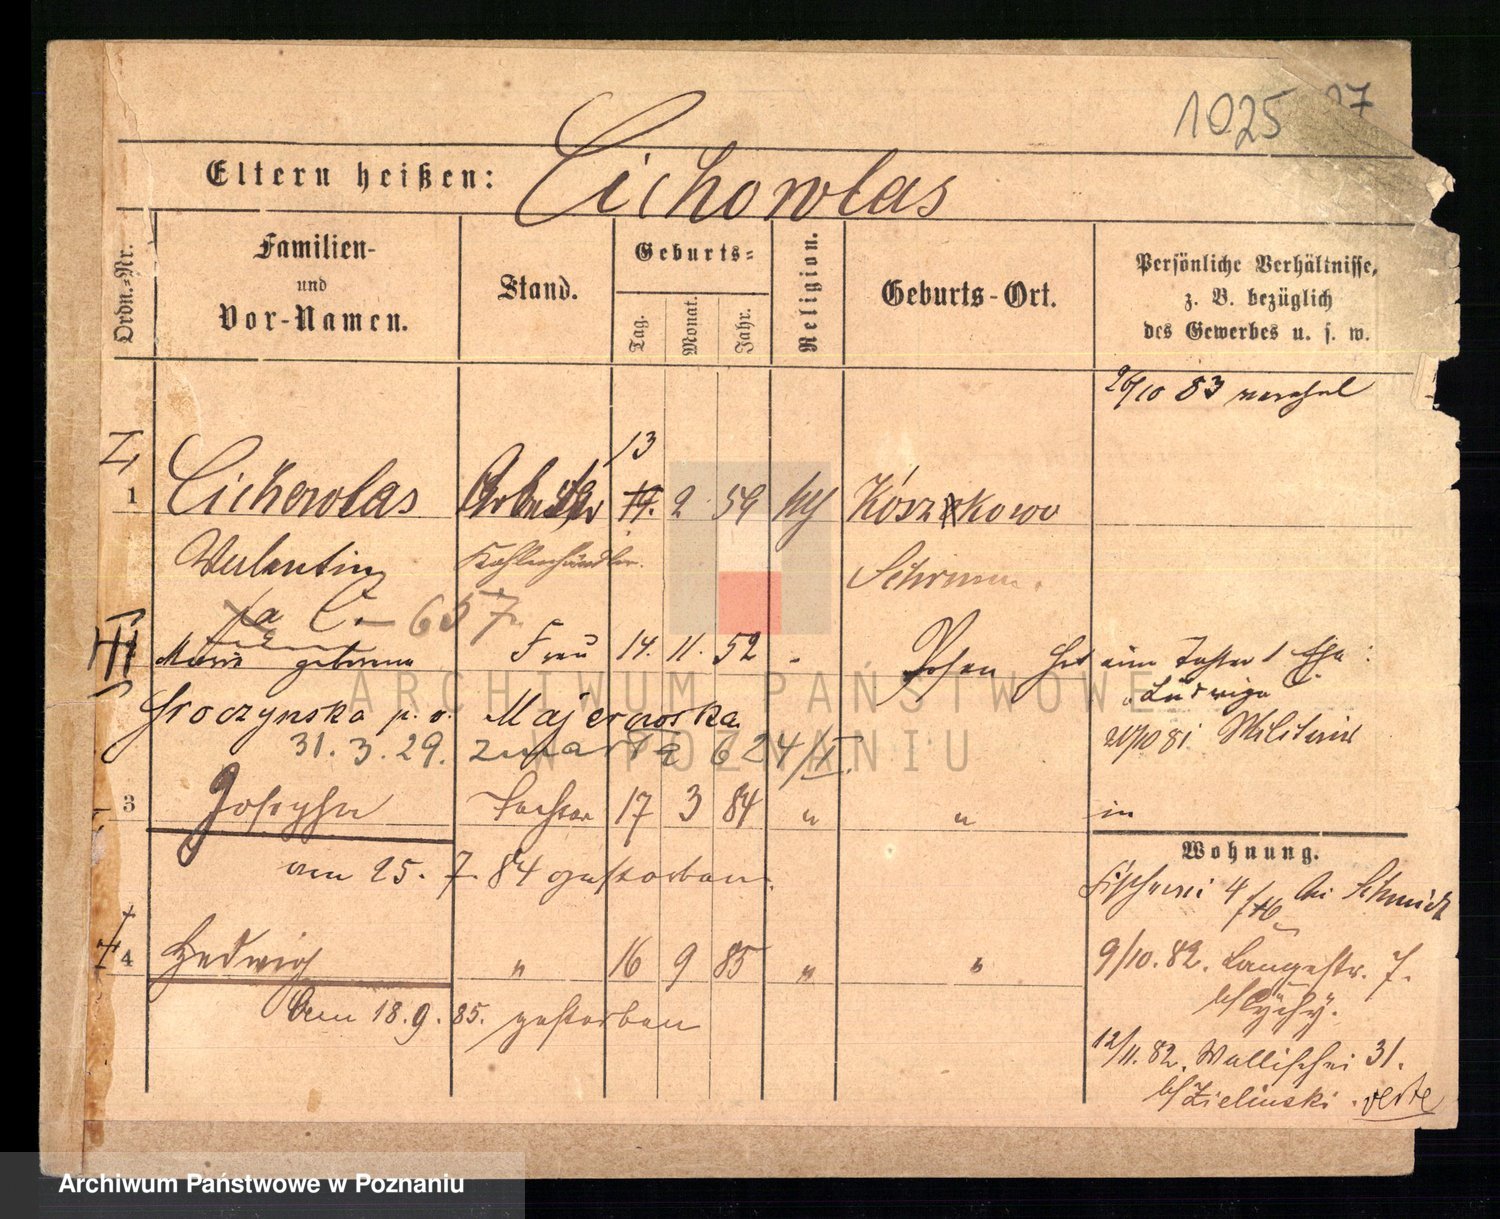 1025
Eltern heißen: Cichowlas
Ordn.-Nr.
Familien-
und
Vor-Namen.
Stand.
Geburts-
Tag.
Monat.
Jahr.
Religion.
Geburts-Ort.
Persönliche Verhältnisse,
z. B. bezüglich
des Gewerbes u. s. w.
26/10 83
13
1 Cichowlas Arbeiter 17. 2 59 Kószkowo
Valentin Kohlenhändler. Schrimm.
657
geborene Frau 14. 11. 52 Posen
Groczynska p. v. Majerowska
Ludwiga
31. 3. 29. zmarła 624/II.
20/10 81 Militair
3 Josepha Tochter 17 3 84 " "
in
am 25. 7. 84 gestorben.
Wohnung.
Fischerei 4 bei Schmidt
4 Hedwig " 16 9 85 " "
9/10. 82. Langestr. 7.
am 18. 9. 85. gestorben
12/11. 82. Wallischei 31.
b/Zielinski. verte
ARCHIWUM PAŃSTWOWE
W POZNANIU
Archiwum Państwowe w Poznaniu